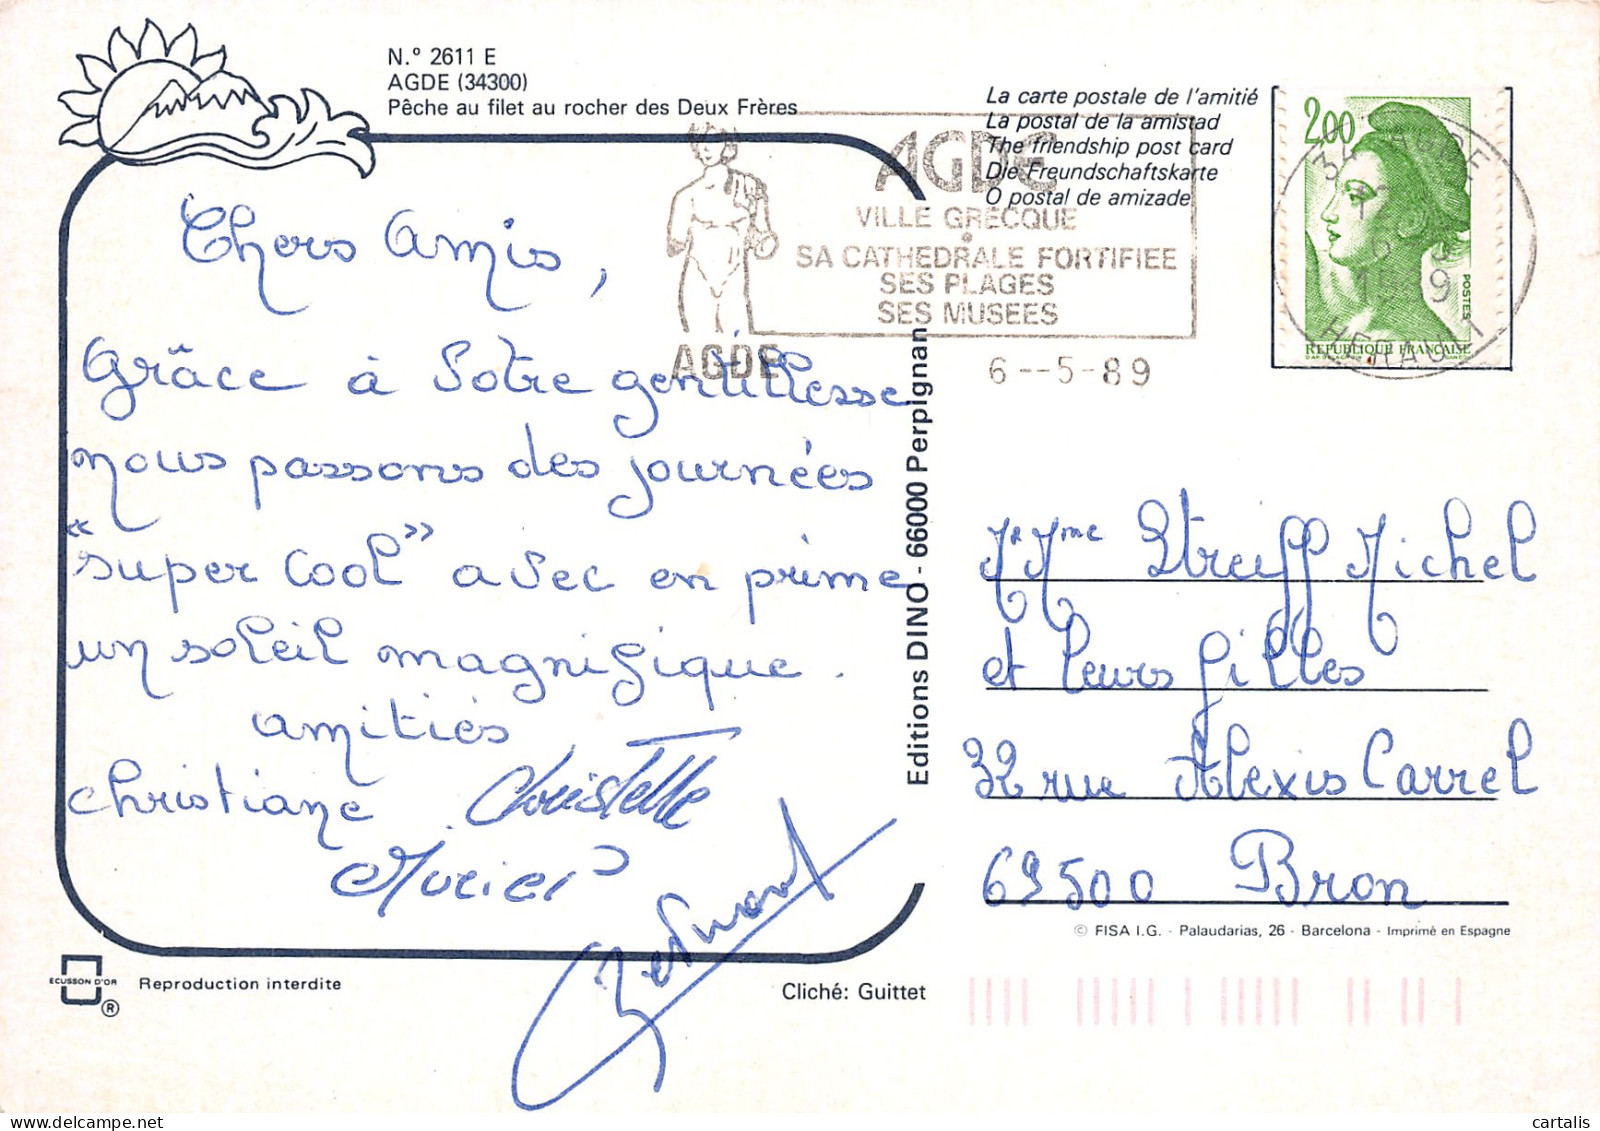 N.º 2611 E
AGDE (34300)
Pêche au filet au rocher des Deux Frères
La carte postale de l'amitié
La postal de la amistad
The friendship post card
Die Freundschaftskarte
O postal de amizade
AGDE
VILLE GRECQUE
SA CATHEDRALE FORTIFIEE
SES PLAGES
SES MUSEES
AGDE
6--5-89
2,00
POSTES
REPUBLIQUE FRANÇAISE
34 AGDE
HERAULT
Chers Amis,
Grâce à Votre gentillesse
nous passons des journées
"super cool" avec en prime
un soleil magnifique.
amitiés
christiane Christelle
Muriel
Editions DINO - 66000 Perpignan
Mr Mme Streiff Michel
et leurs filles
32 rue Alexis Carrel
69500 Bron
© FISA I.G. - Palaudarias, 26 - Barcelona - Imprimé en Espagne
ECUSSON D'OR
®
Reproduction interdite
Cliché: Guittet
cartalis